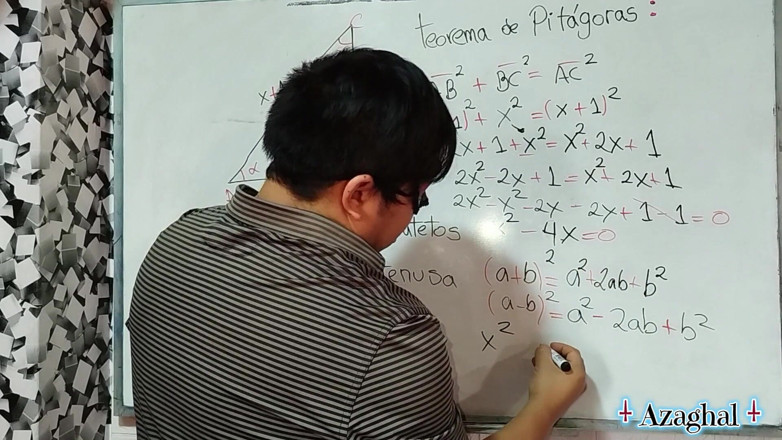 teorema de Pitágoras:
B² + BC² = AC²
)² + x² = (x + 1)²
x + 1 + x² = x² + 2x + 1
2x² - 2x + 1 = x² + 2x + 1
2x² - x² - 2x - 2x + 1 - 1 = 0
² - 4x = 0
(a+b)² = a² + 2ab + b²
(a-b)² = a² - 2ab + b²
x²
x+
α
Azaghal